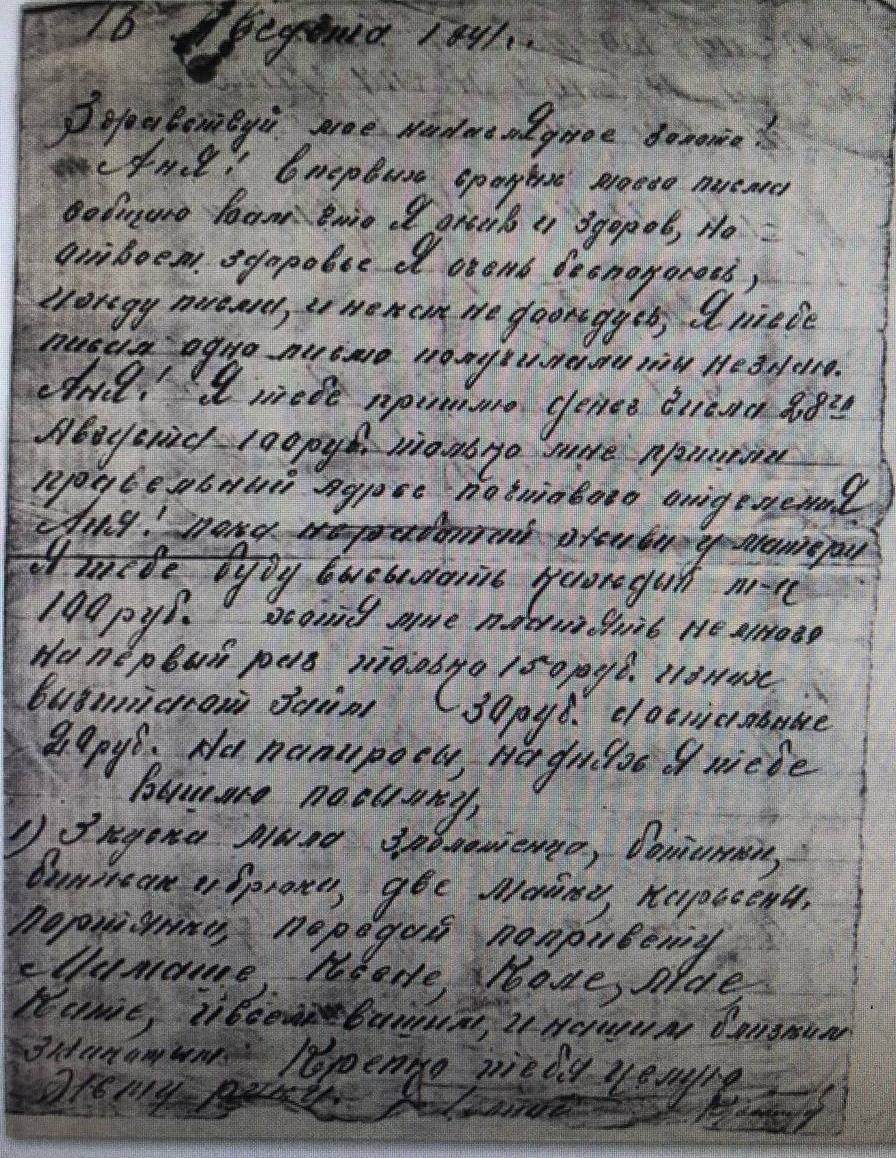 16 Августа 1941г.
Здравствуй мое ненаглядное золото!
Аня! Впервых строках моего писма
собщаю вам что Я жив и здоров, но
отвоем здоровье Я очень беспокоюсь,
ижду писма, и некак не дождусь, Я тебе
писал одно писмо получилали ты незнаю.
Аня! Я тебе пришлю денег числа 28го
Августа 100 руб. только мне пришли
правельный адрес почтового отделения
Аня! пока неработай живи у матери
Я тебе буду высылать каждый м-ц
100 руб. хотя мне платять не много
на первый раз только 150 руб. изних
вычитают займ 30 руб. а остальные
20 руб. на папиросы, на днях Я тебе
вышлю посылку,
1) 3 куска мыла 3 полотенца, ботинки,
пинжак и брюки, две майки, карьсены.
портянки, передай попривету
Мамаше, Ксене, Коле, мае
Кате, ивсем вашим, и нашим близким
знакомым. Крепко тебя целую
жму руку.